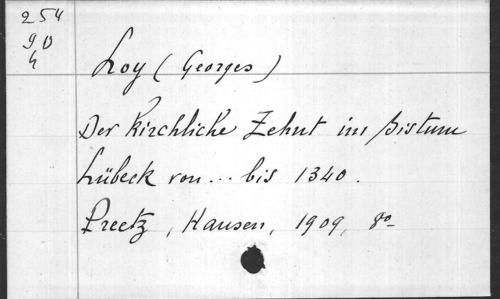 254
90
h
Loy (Georges)
Der kirchliche Zehnt im Bistum
Lübeck von ... bis 1340.
Preetz, Hansen, 1909, 8°